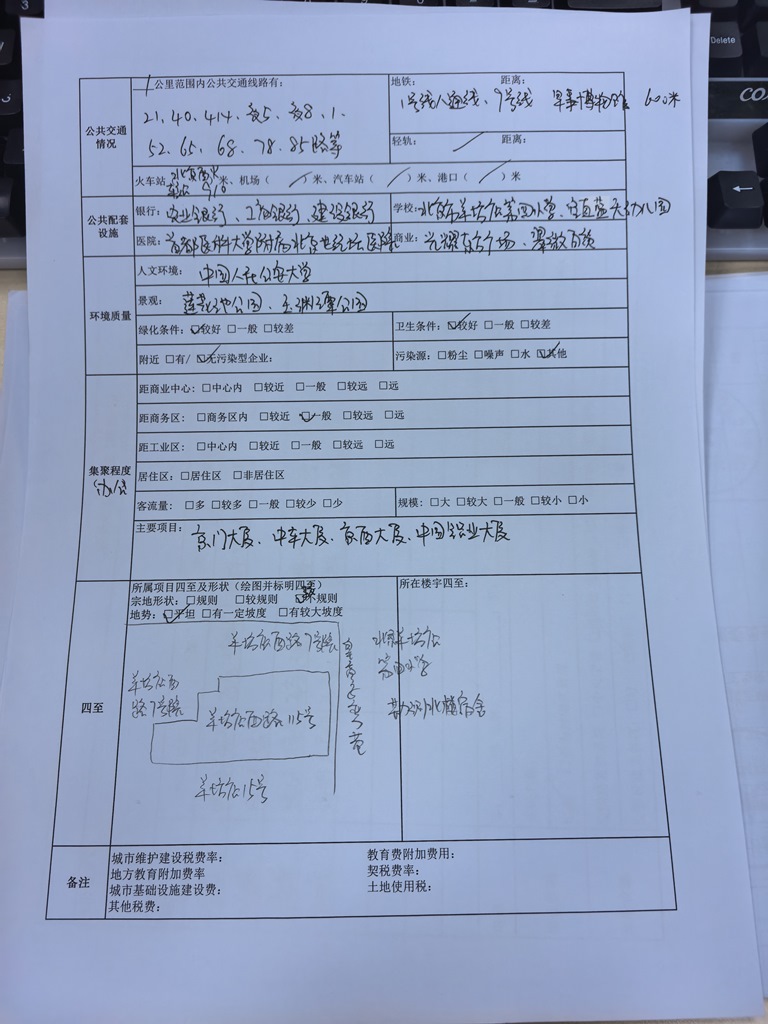 Delete
1 公里范围内公共交通线路有:
地铁: 距离:
21、40、414、
1号线 9号线 军事博物馆 600米
公共交通情况
52、65、68、78、85路等
轻轨: / 距离:
火车站 北京西火车站 910米、机场( / )米、汽车站( / )米、港口( / )米
公共配套设施
银行: 农业银行、工商银行、建设银行
学校: 北京市羊坊店第四小学、蓝天幼儿园
医院: 首都医科大学附属北京世纪坛医院
商业: 光耀东方广场、翠微百货
环境质量
人文环境: 中国人民公安大学
景观: 莲花池公园、玉渊潭公园
绿化条件: ☑较好 □一般 □较差
卫生条件: ☑较好 □一般 □较差
附近 □有/ ☑无污染型企业:
污染源: □粉尘 □噪声 □水 ☑其他
集聚程度
办公
距商业中心: □中心内 □较近 □一般 □较远 □远
距商务区: □商务区内 □较近 ☑一般 □较远 □远
距工业区: □中心内 □较近 □一般 □较远 □远
居住区: □居住区 □非居住区
客流量: □多 □较多 □一般 □较少 □少
规模: □大 □较大 □一般 □较小 □小
主要项目: 京门大厦、中车大厦、京西大厦、中国铝业大厦
四至
所属项目四至及形状(绘图并标明四至)
所在楼宇四至:
宗地形状: □规则 □较规则 ☑不规则
地势: ☑平坦 □有一定坡度 □有较大坡度
羊坊店西路7号院
北京羊坊店
第四小学
羊坊店西
路7号院
羊坊店西路115号
宿舍
羊坊店15号
备注
城市维护建设税费率:
教育费附加费用:
地方教育附加费率
契税费率:
城市基础设施建设费:
土地使用税:
其他税费: